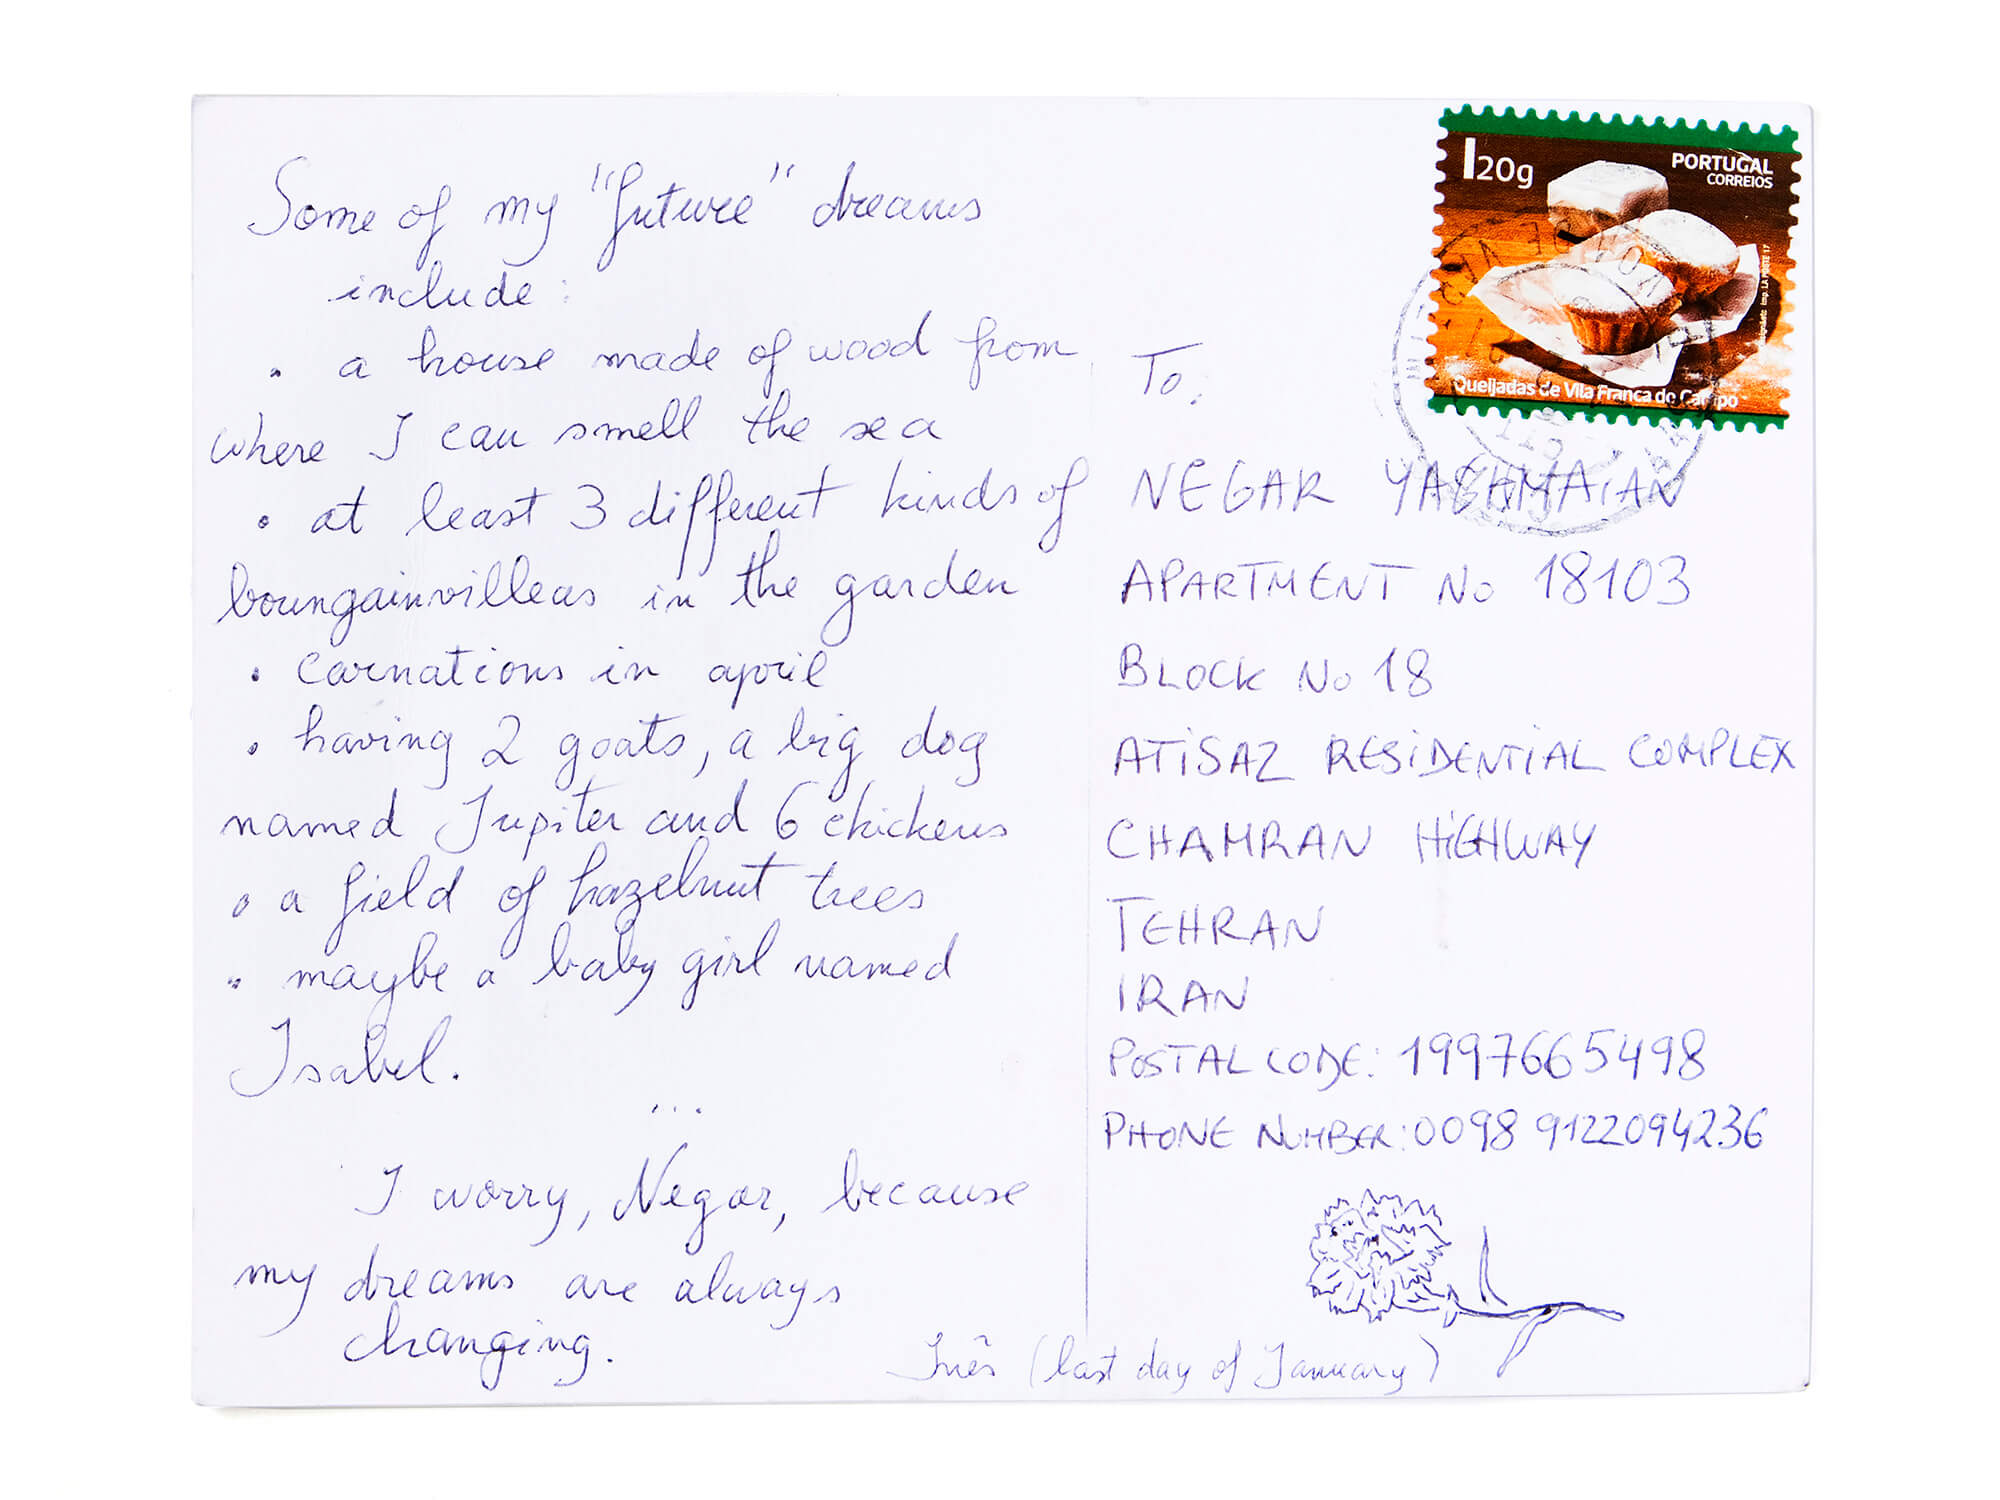 Some of my "future" dreams
include:
• a house made of wood from
where I can smell the sea
• at least 3 different kinds of
boungainvilleas in the garden
• carnations in april
• having 2 goats, a big dog
named Jupiter and 6 chickens
• a field of hazelnut trees
• maybe a baby girl named
Isabel.
...
I worry, Negar, because
my dreams are always
changing.
Inês (last day of January)
I20g
PORTUGAL
CORREIOS
Queijadas de Vila Franca do Campo
To:
NEGAR YAGHMAIAN
APARTMENT No 18103
BLOCK No 18
ATISAZ RESIDENTIAL COMPLEX
CHAMRAN HIGHWAY
TEHRAN
IRAN
POSTAL CODE: 1997665498
PHONE NUMBER: 0098 9122094236